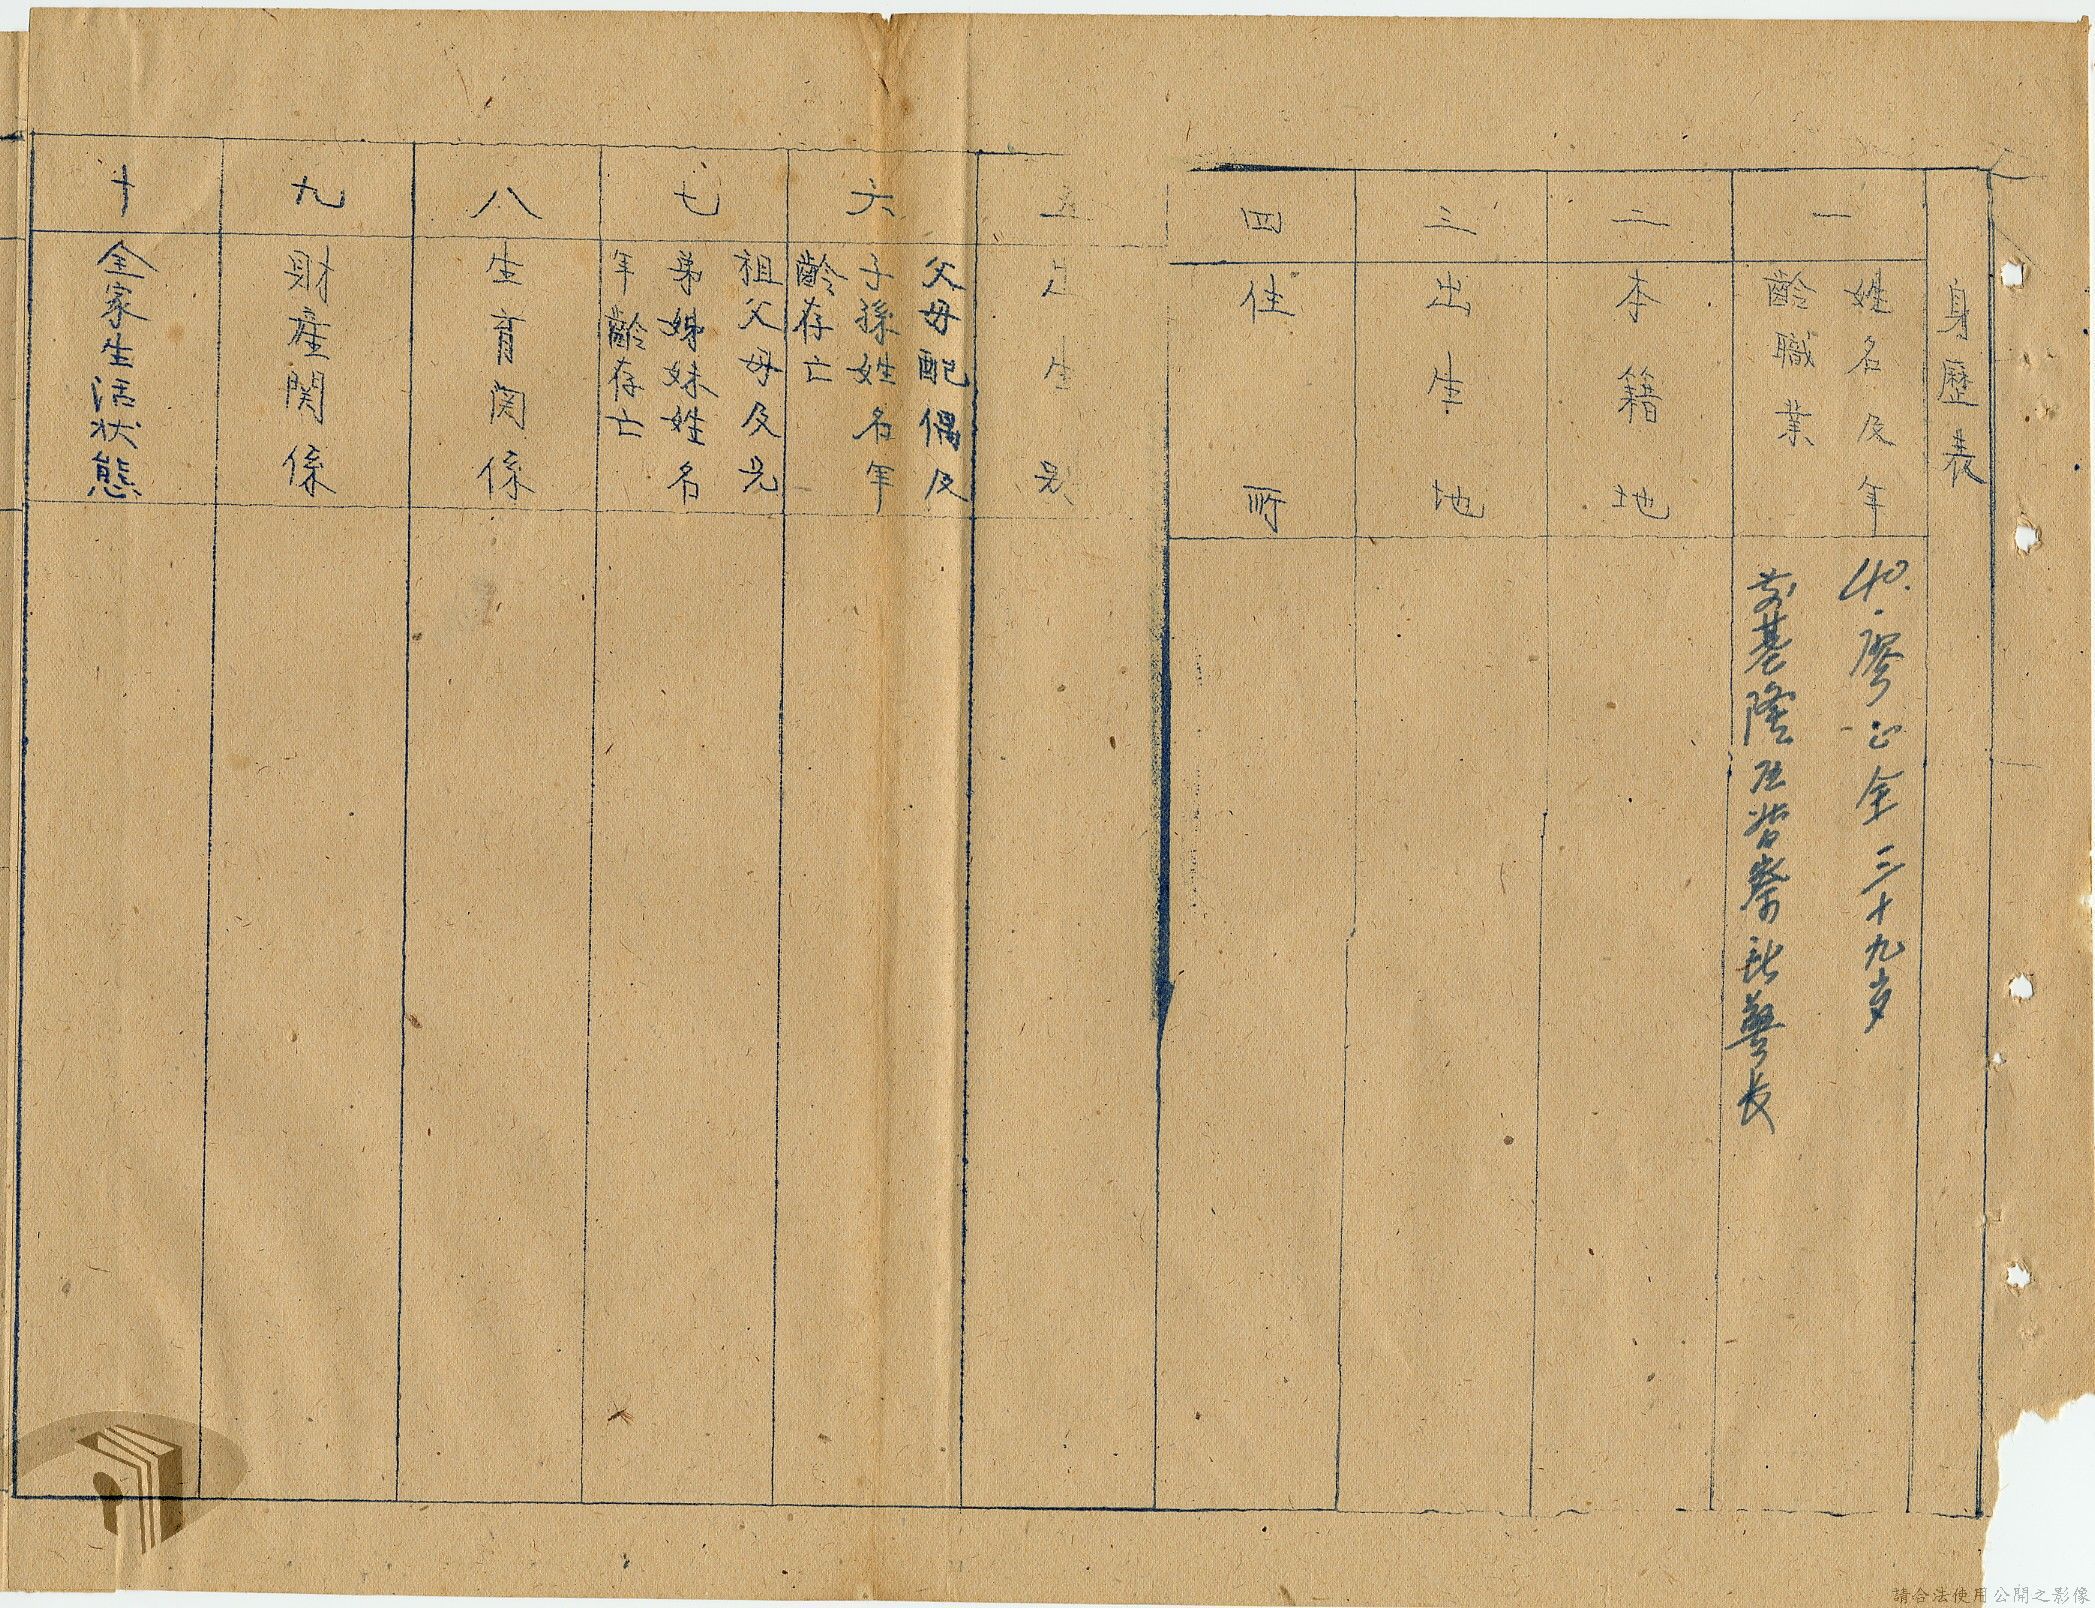 身歷表
一
姓名及年
齡職業
40.廖 金三十九岁
前基隆 警察 警長
二
本籍地
三
出生地
四
住所
五
出生別
六
父母配偶及
子孫姓名年
齡存亡
七
祖父母及兄
弟姊妹姓名
年齡存亡
八
生育関係
九
財産関係
十
全家生活状態
請合法使用公開之影像